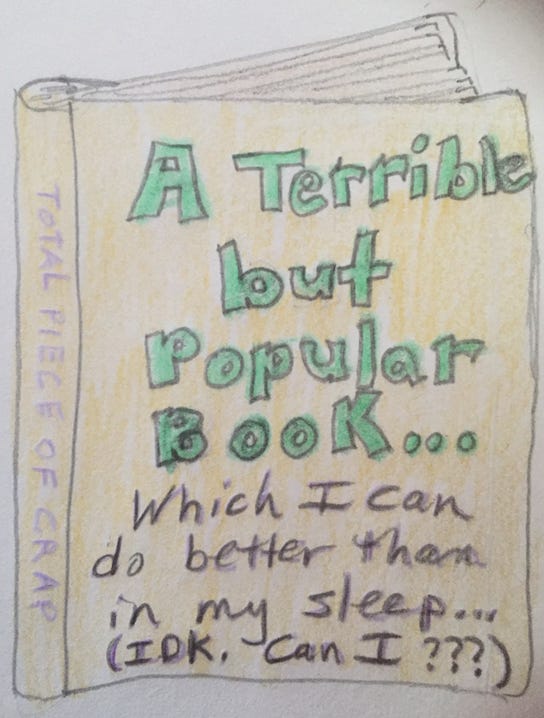 TOTAL PIECE OF CRAP
A Terrible
but
Popular
BOOK...
Which I can
do better than
in my sleep...
(IDK. Can I ???)